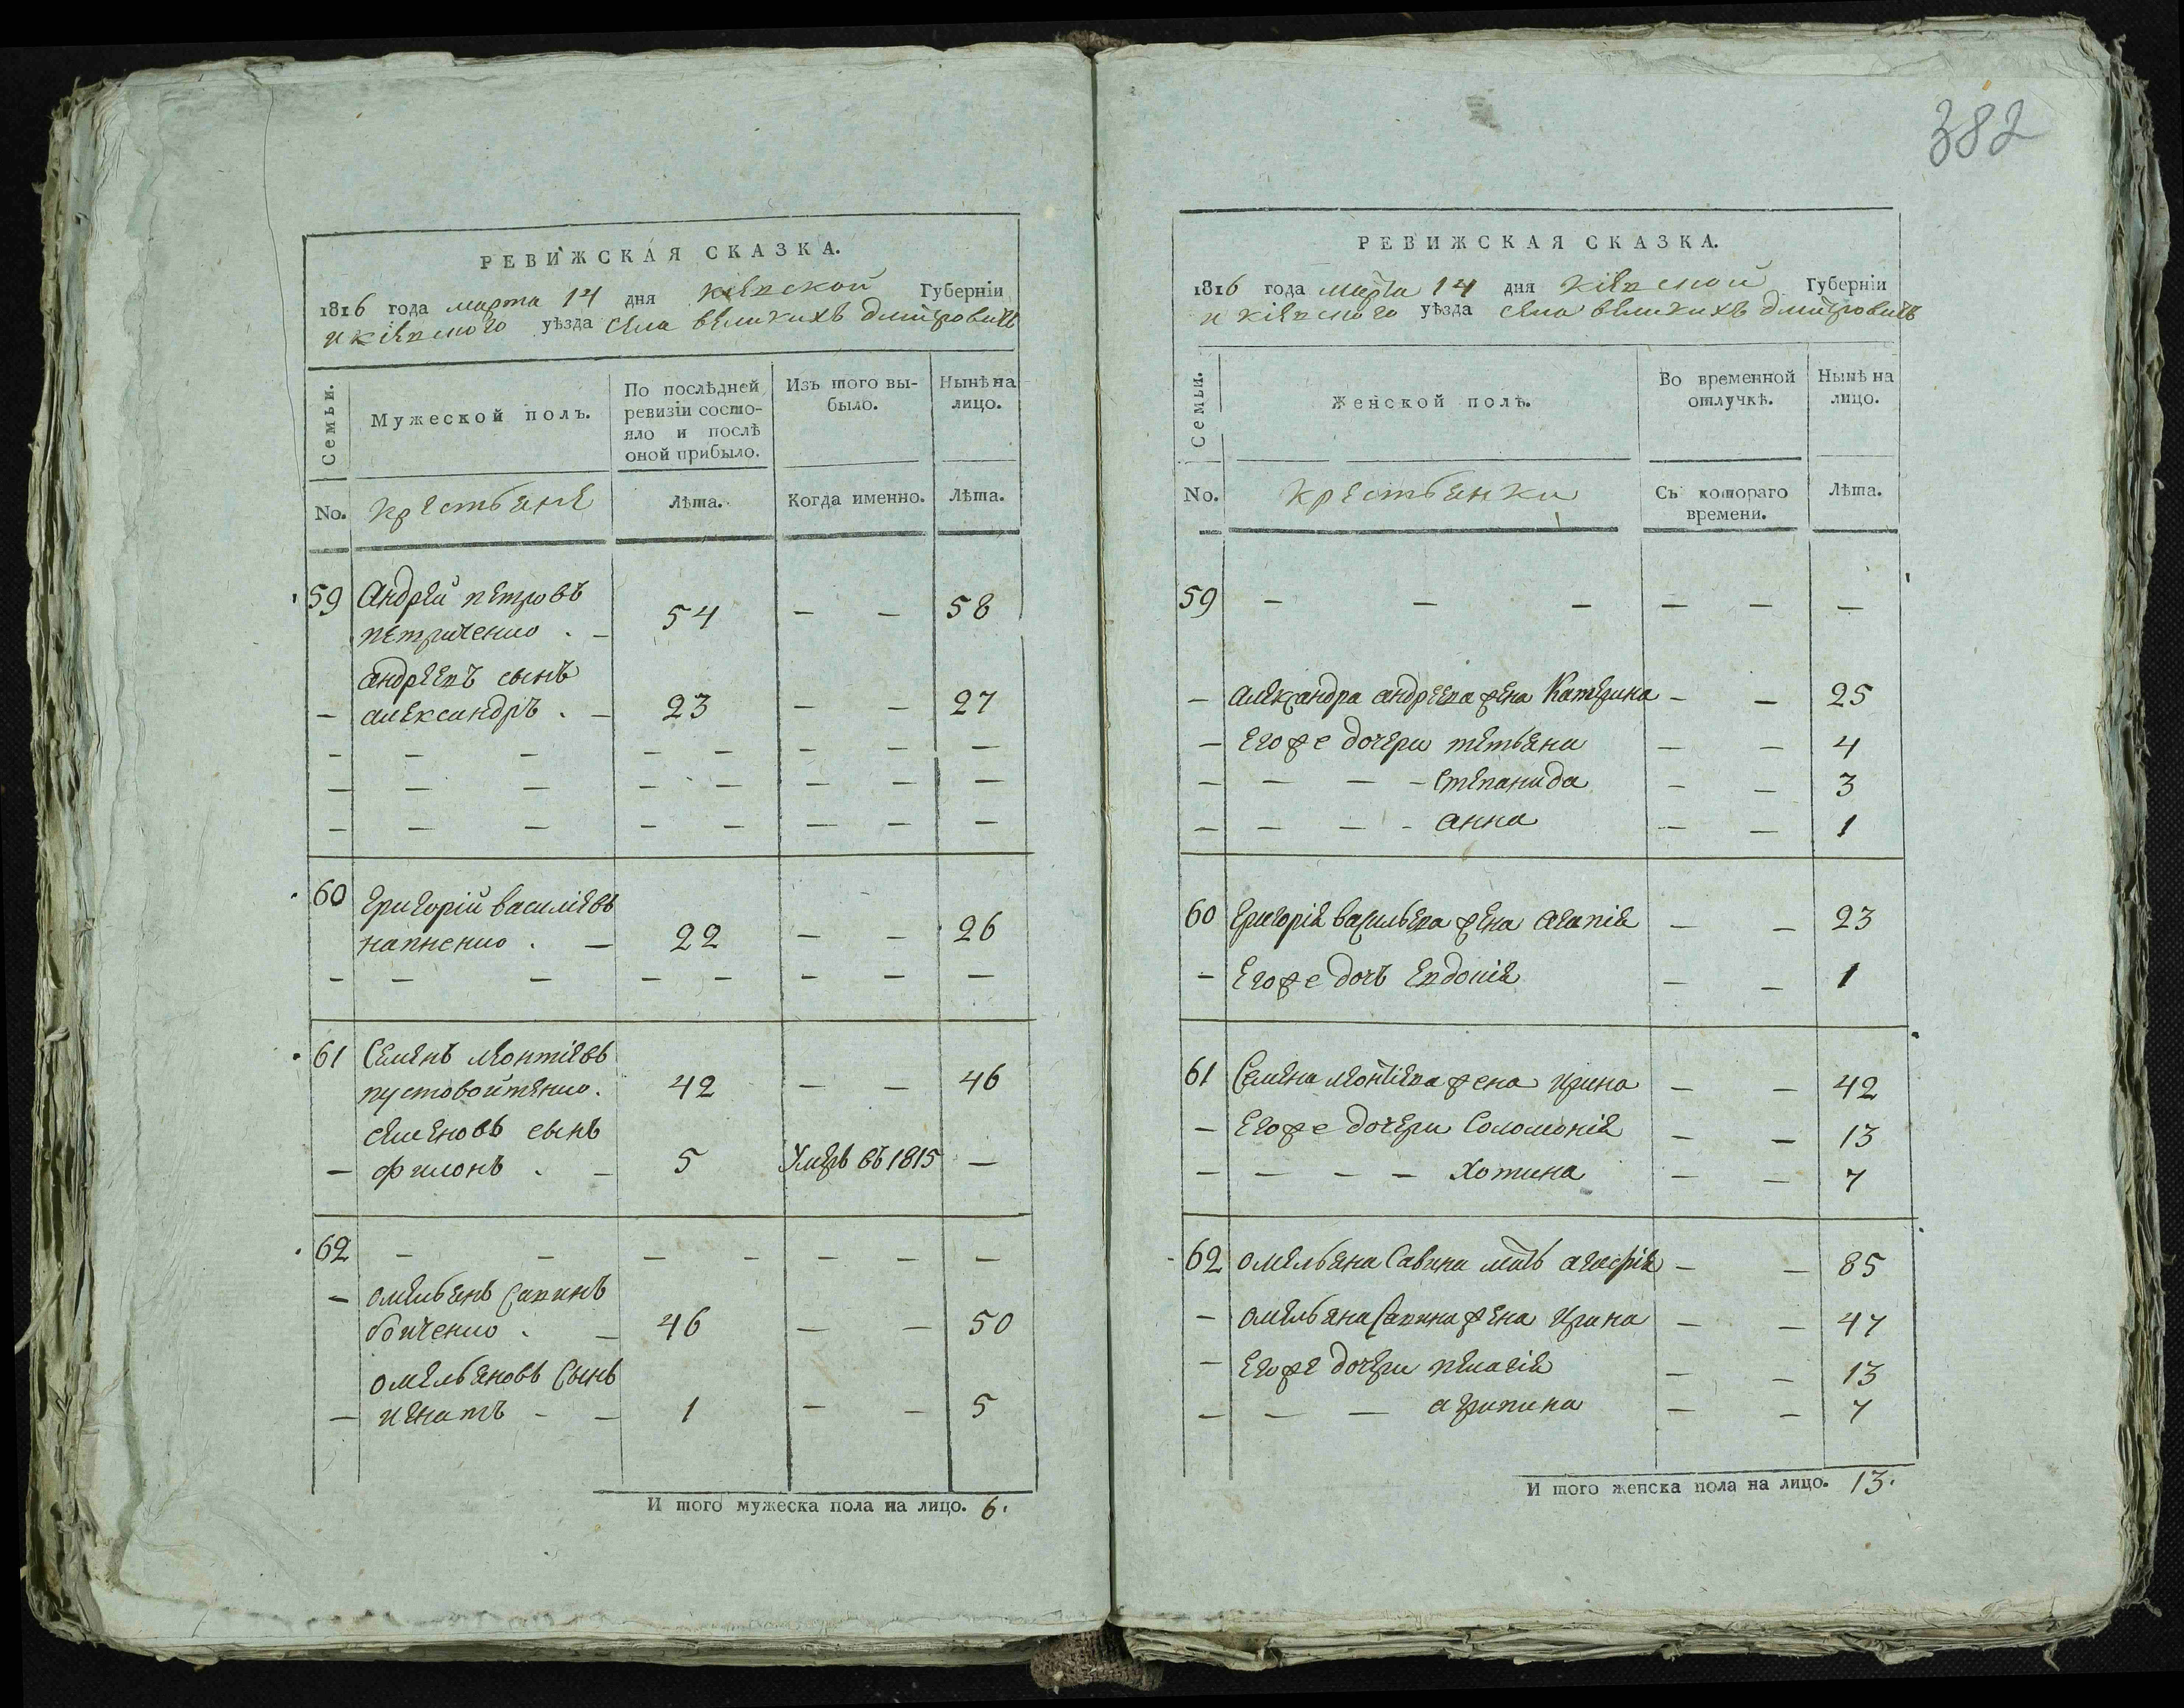 382
РЕВИЖСКАЯ СКАЗКА.
1816 года марта 14 дня Кіевской Губерніи
и кіевского уѣзда села великихъ дмитровичъ
Семьи.
Мужеской полъ.
По послѣдней ревизіи состояло и послѣ оной прибыло.
Изъ того выбыло.
Нынѣ на лицо.
No. крестьяне
Лѣта.
Когда именно.
Лѣта.
59 Андрей петровъ
петриченко . – 54 – – 58
андреевъ сынъ
– александръ . – 23 – – 27
– – – – – – – –
– – – – – – – –
– – – – – – – –
60 григорій василіевъ
– 22 – – 26
– – – – – – – –
61 Семенъ леонтіевъ
пустовойтенко . 42 – – 46
семеновъ сынъ
– филонъ . – 5 Умеръ въ 1815 –
62 – – – – – – –
– омельянъ савинъ
бойченко . – 46 – – 50
омельяновъ сынъ
– игнатъ – – 1 – – 5
И того мужеска пола на лицо. 6.
РЕВИЖСКАЯ СКАЗКА.
1816 года марта 14 дня Кіевской Губерніи
и кіевского уѣзда села великихъ дмитровичъ
Семьи.
Женской полъ.
Во временной отлучкѣ.
Нынѣ на лицо.
No. крестьянки
Съ котораго времени.
Лѣта.
59 – – – – – –
– александра андреева жена Катерина – – 25
– Его же дочери тетьяна – – 4
– – – – степанида – – 3
– – – – анна – – 1
60 григорія васильева жена агапія – – 23
– Его же дочъ Евдокія – – 1
61 Семена леонтіева жена ирина – – 42
– Его же дочери Соломонія – – 13
– – – – Хотина – – 7
62 омельяна Савина мать агафія – – 85
– омельяна Савина жена Ирина – – 47
– Его же дочери пелагія – – 13
– – – агрипина – – 7
И того женска пола на лицо. 13.